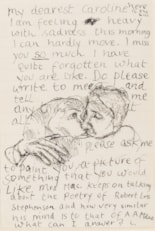 my dearest Caroline
I am feeling so heavy
with sadness this morning
I can hardly move. I miss
you so much I have
quite forgotten what
you are like. Do please
write to me and
tell
any
all
Please ask me
to paint you a picture of
something that you would
like. Mrs Mac keeps on talking
about the Poetry of Robert Louis
Stephenson and how very similar
his mind is to that of A A Milne
what can I answer